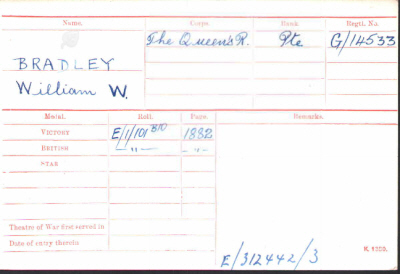 Name. Corps. Rank Regtl. No.
BRADLEY The Queen's R. Pte G/14533
William W.
Medal. Roll. Page. Remarks.
VICTORY E/1/101 B10 1882
BRITISH —"— —"—
STAR
Theatre of War first served in
Date of entry therein
K. 1380.
E/312442/3